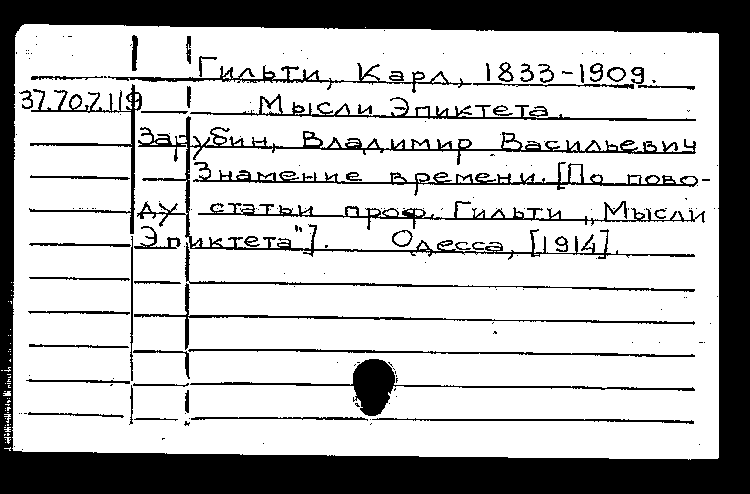 Гильти, Карл, 1833-1909.
37.70.7.119 Мысли Эпиктета.
Зарубин, Владимир Васильевич
Знамение времени. [По пово-
ду статьи проф. Гильти „Мысли
Эпиктета"]. Одесса, [1914].